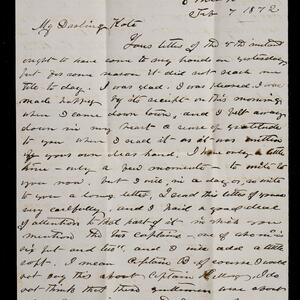 Feb 7 1872
My Darling Kate
Yours letter of the 5th instant
ought to have come to my hands on yesterday
but for some reason it did not reach me
till to day. I was glad. I was pleased. I was
made happy by its receipt on this morning
when I came down town, and I felt away
down in my heart a sense of gratitude
to you when I read it as it was written
by your own dear hand. I have only a little
time - only a few moments - to write to
you now. but I will, in a day or so, write
to you a long letter. I read this letter of yours
very carefully, and I paid a special
attention to that part of it in which you
mention the two captains - one of whom "is
six feet and two", and I will add a little
soft. I mean Captain B. of course I would
not say this about Captain I do
not think that third gentleman was about